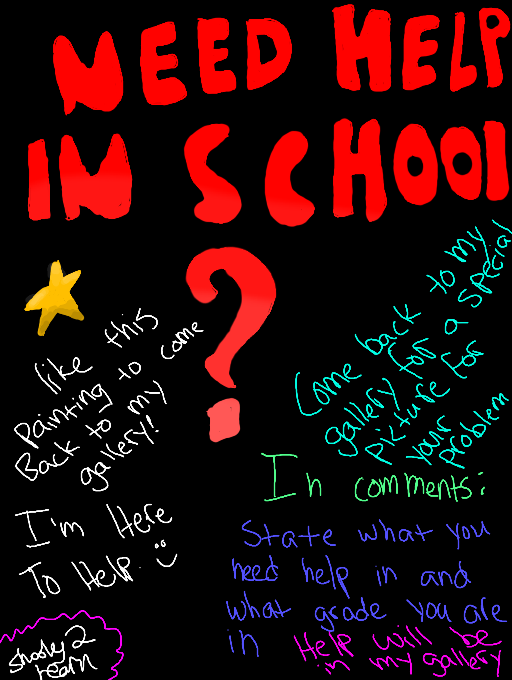 NEED HELP
IN SCHOOL
?
like this
Painting to come
Back to my
gallery!
Come back to my
gallery for a special
picture for
your
problem
I'm Here
To Help. :)
In comments:
State what you
need help in and
what grade you are
in Help will be
in my gallery
2
team